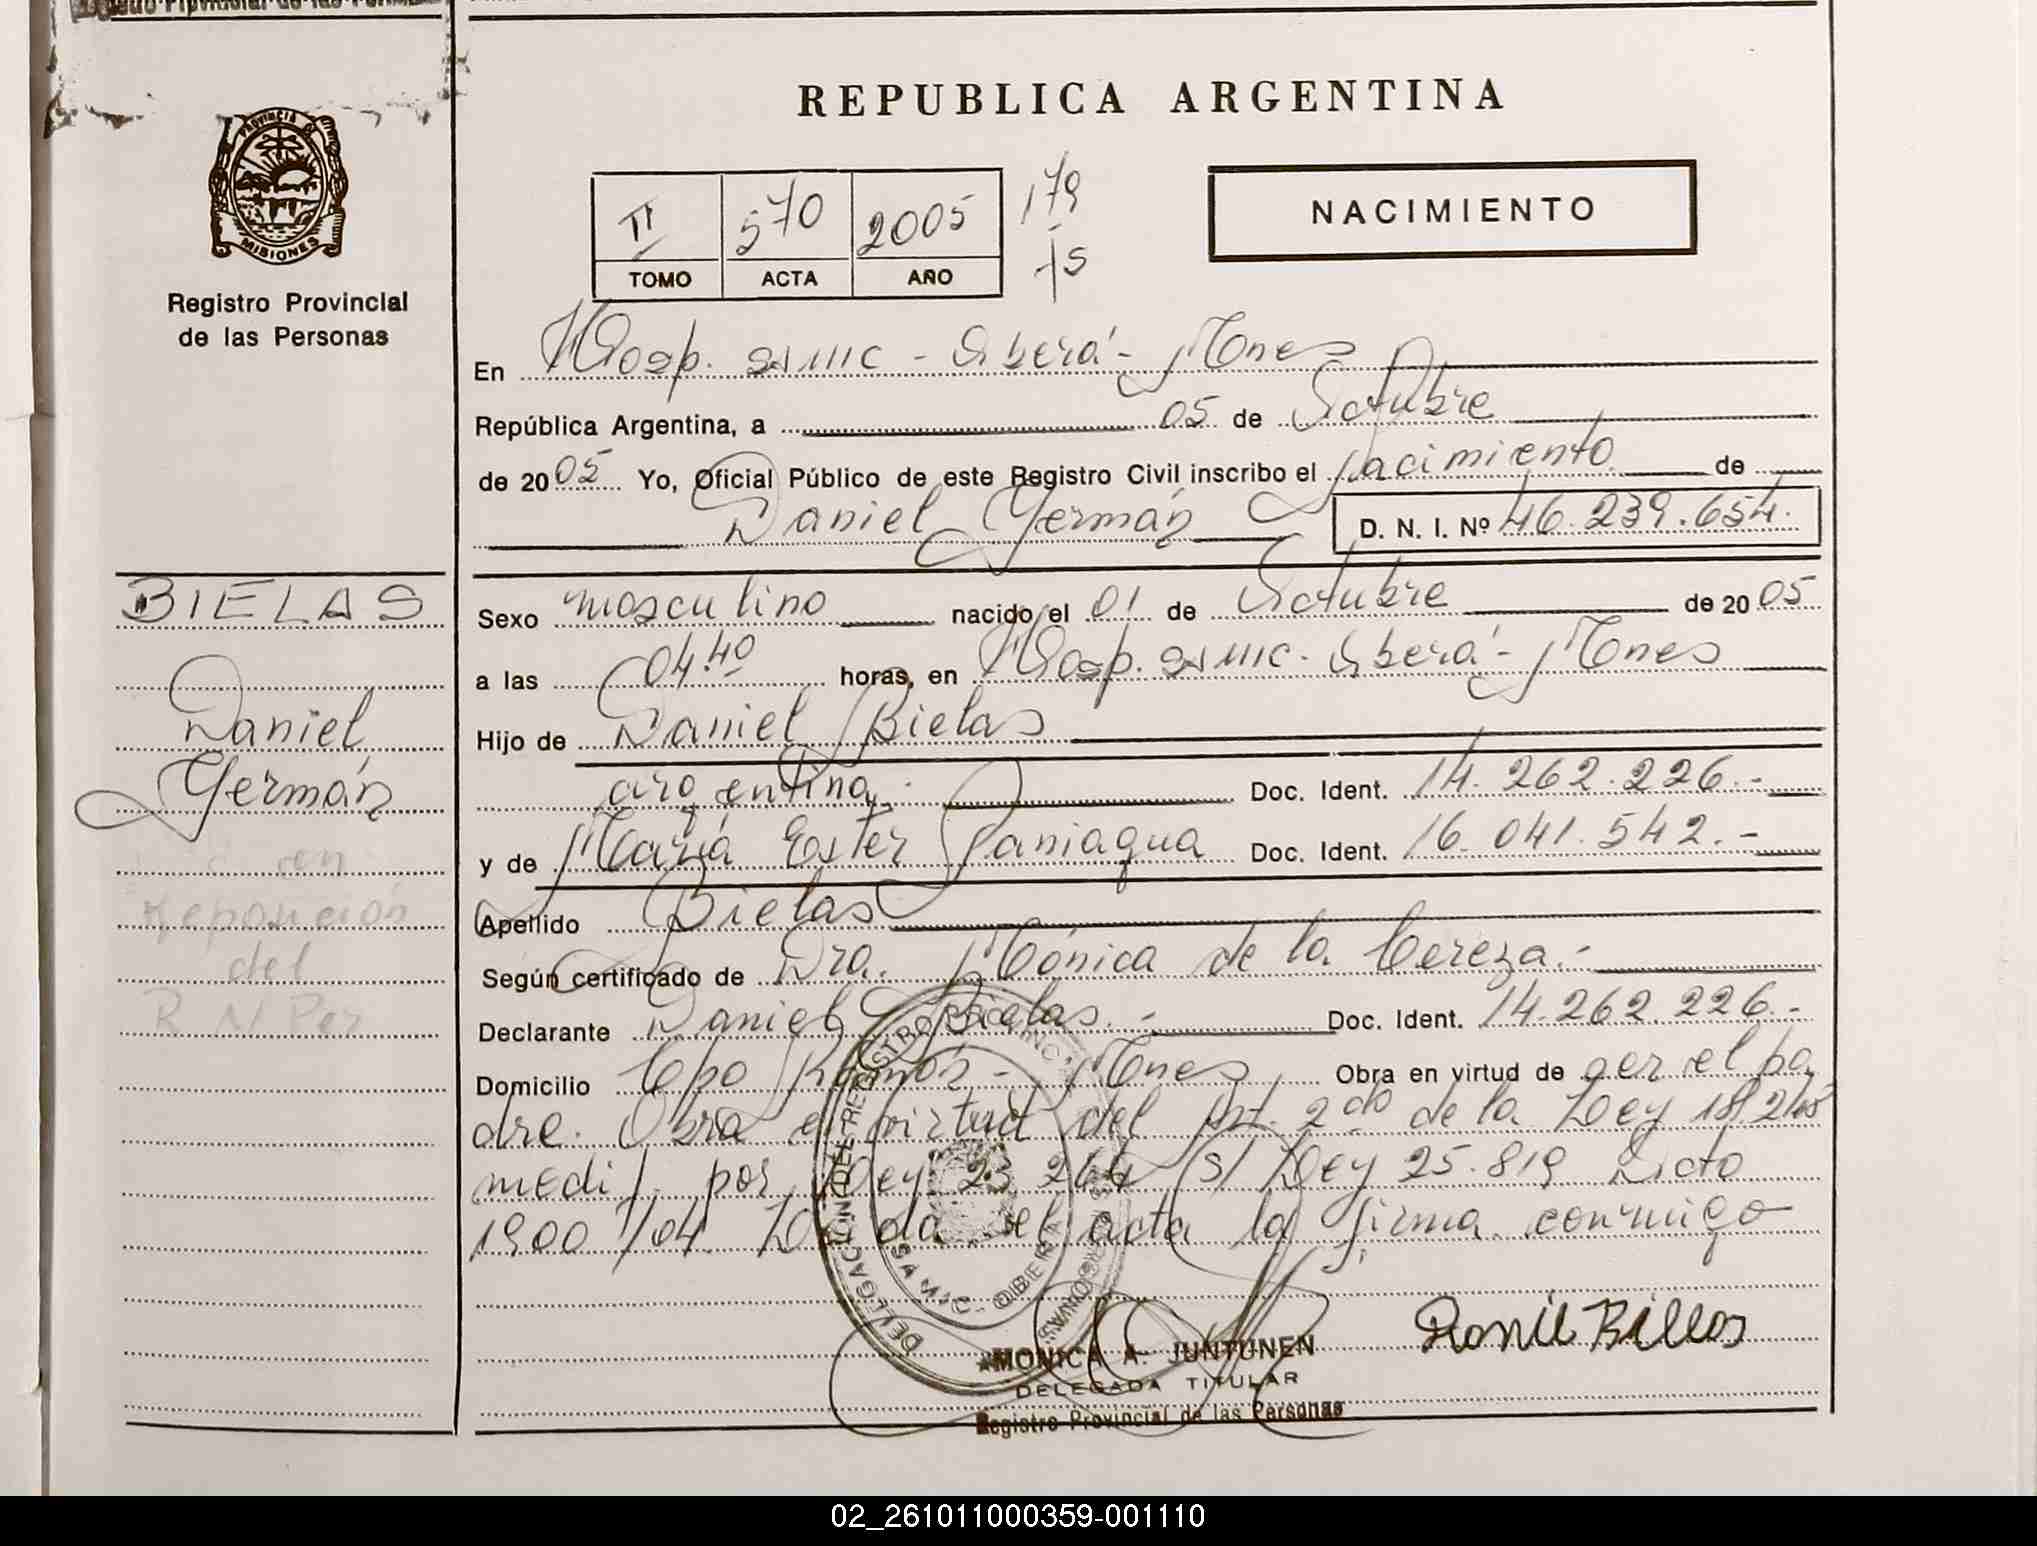 PROVINCIA DE
MISIONES
Registro Provincial
de las Personas
BIELAS
Daniel
Germán
con
Reposición
del
R N Per
REPUBLICA ARGENTINA
II 570 2005 179
TOMO ACTA AÑO
NACIMIENTO
En Hosp. SAMIC - Oberá - Mnes
República Argentina, a 05 de Octubre
de 2005 Yo, Oficial Público de este Registro Civil inscribo el nacimiento de
Daniel Germán D. N. I. Nº 46.239.654.
Sexo masculino nacido el 01 de Octubre de 2005
a las 04.40 horas, en Hosp. SAMIC. Oberá - Mnes
Hijo de Daniel Bielas
argentina. Doc. Ident. 14.262.226.-
y de María Ester Paniagua Doc. Ident. 16.041.542.-
Apellido Bielas
Según certificado de Dra. Mónica de la Cereza.-
Declarante Daniel Bielas.- Doc. Ident. 14.262.226.-
Domicilio Cpo Ramón - Mnes Obra en virtud de ser el pa
dre. Obra en virtud del Art. 2do de la Ley 18.248
medi/. por Ley 23.264 S/ Ley 25.819 Dcto
1900/04. Leída el acta la firma conmigo
DELEGACION DEL REGISTRO PROVINCIAL DE LAS PERSONAS
SAMIC - OBERA
MONICA A. JUNTUNEN
DELEGADA TITULAR
Registro Provincial de las Personas
02_261011000359-001110